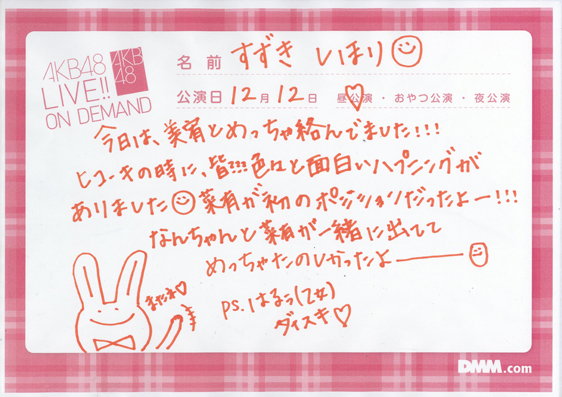 AKB48
LIVE!!
ON DEMAND
AKB
48
名前 すずき しほり
公演日 12月12日 昼公演・おやつ公演・夜公演
今日は、美宥とめっちゃ絡んでました!!!
ヒコーキの時に、皆色々と面白いハプニングが
ありました 菜有が初のポジションだったよー!!!
なんちゃんと菜有が一緒に出てて
めっちゃたのしかったよ———
またネ♡
ps.はるっ(乙女)
ダイスキ♡
DMM.com